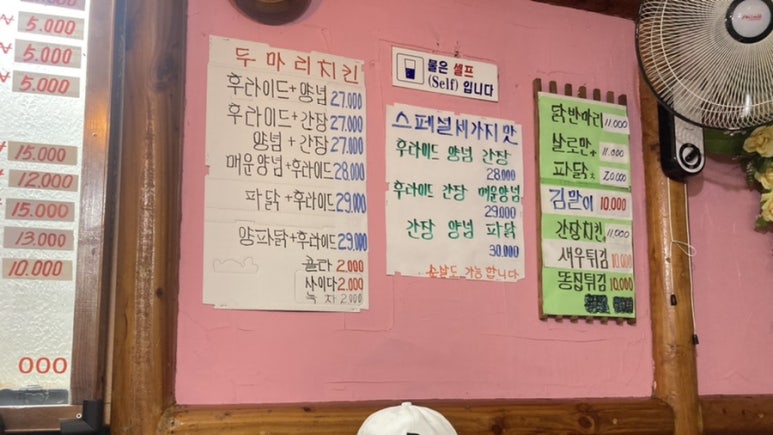 ₩ 5.000
₩ 5.000
₩ 5.000
₩ 15.000
₩ 12.000
15.000
13.000
10.000
000
두마리치킨
후라이드+양념 27.000
후라이드+간장 27.000
양념+간장 27.000
매운양념+후라이드 28.000
파닭+후라이드 29.000
양파닭+후라이드 29.000
콜라 2.000
사이다 2.000
녹차 2.000
물은 셀프
(Self) 입니다
스페셜세가지맛
후라이드 양념 간장
28.000
후라이드 간장 매운양념
29.000
간장 양념 파닭
30.000
순살도 가능합니다
닭반마리 11.000
살로만+ 11.000
파닭 20.000
김말이 10.000
간장치킨 11.000
새우튀김 10.000
똥집튀김 10.000